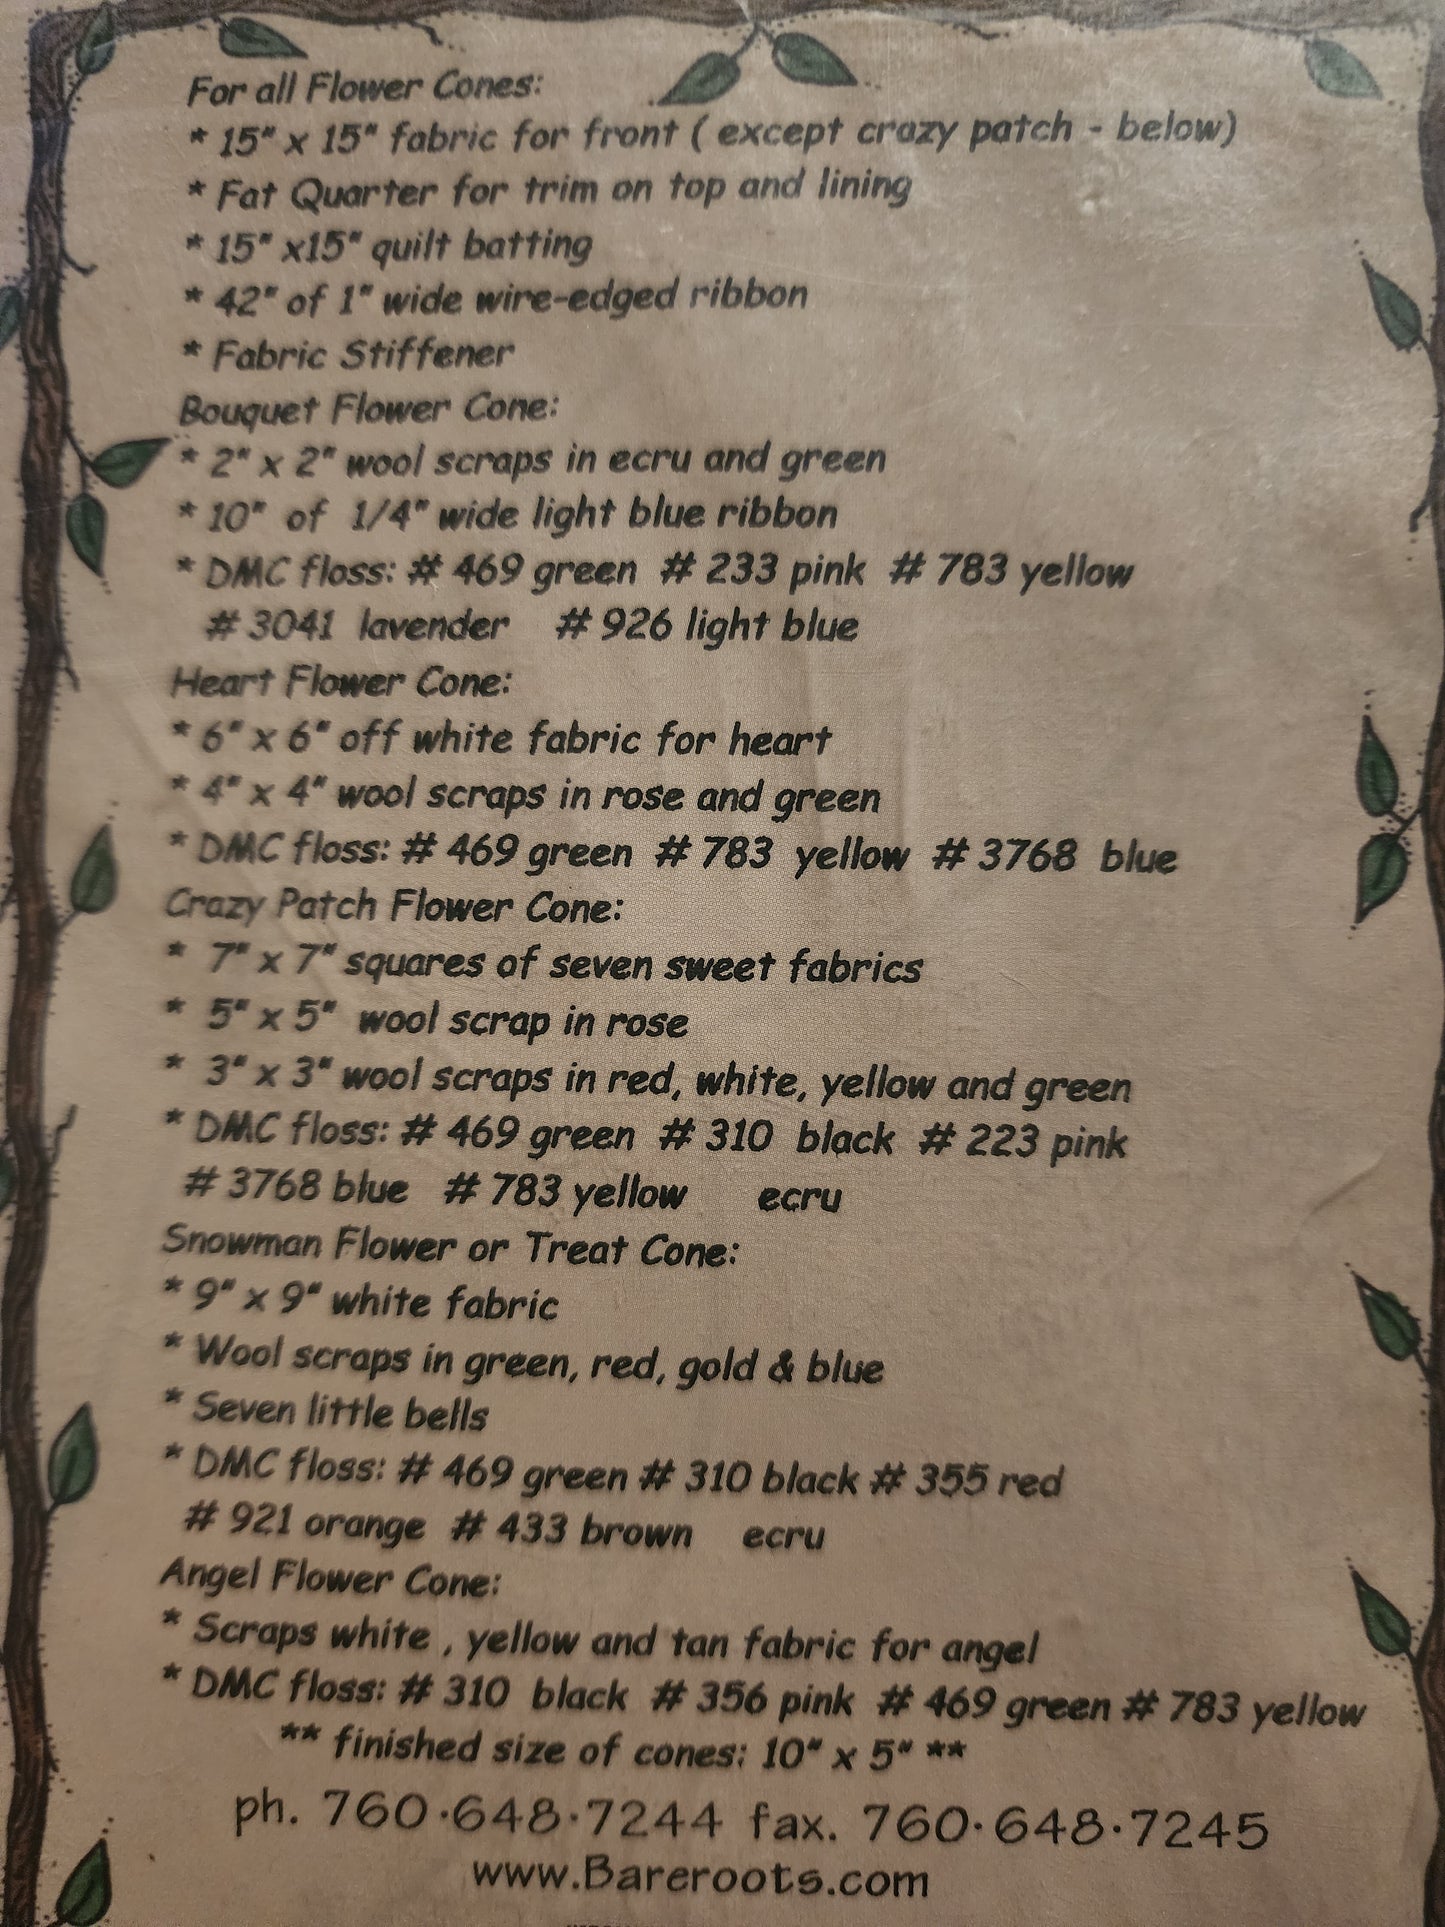 For all Flower Cones:
* 15" x 15" fabric for front ( except crazy patch - below)
* Fat Quarter for trim on top and lining
* 15" x15" quilt batting
* 42" of 1" wide wire-edged ribbon
* Fabric Stiffener
Bouquet Flower Cone:
* 2" x 2" wool scraps in ecru and green
* 10" of 1/4" wide light blue ribbon
* DMC floss: # 469 green # 233 pink # 783 yellow
# 3041 lavender # 926 light blue
Heart Flower Cone:
* 6" x 6" off white fabric for heart
* 4" x 4" wool scraps in rose and green
* DMC floss: # 469 green # 783 yellow # 3768 blue
Crazy Patch Flower Cone:
* 7" x 7" squares of seven sweet fabrics
* 5" x 5" wool scrap in rose
* 3" x 3" wool scraps in red, white, yellow and green
* DMC floss: # 469 green # 310 black # 223 pink
# 3768 blue # 783 yellow ecru
Snowman Flower or Treat Cone:
* 9" x 9" white fabric
* Wool scraps in green, red, gold & blue
* Seven little bells
* DMC floss: # 469 green # 310 black # 355 red
# 921 orange # 433 brown ecru
Angel Flower Cone:
* Scraps white , yellow and tan fabric for angel
* DMC floss: # 310 black # 356 pink # 469 green # 783 yellow
** finished size of cones: 10" x 5" **
ph. 760·648·7244 fax. 760·648·7245
www.Bareroots.com